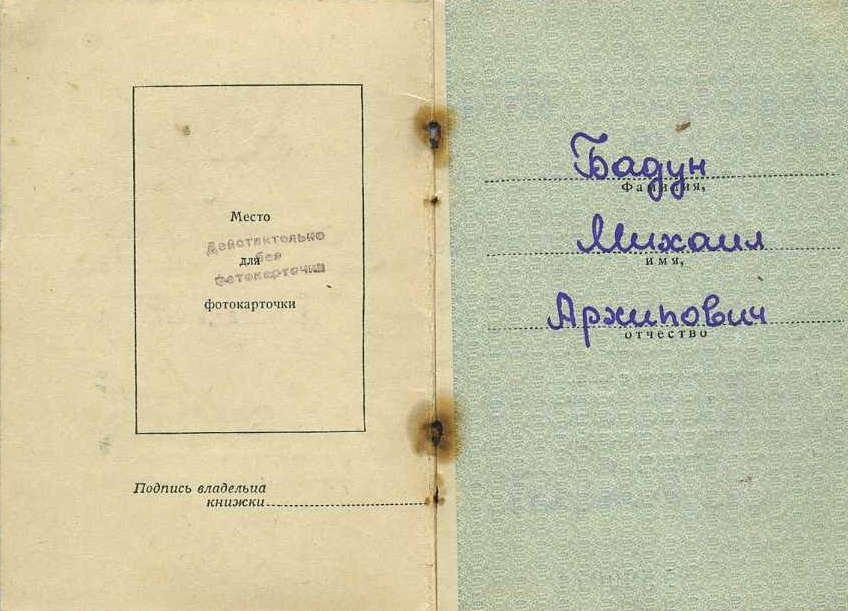 Место
для
фотокарточки
без
фотокарточки
Подпись владельца
книжки
Бадун
Фамилия,
Михаил
имя,
Архипович
отчество